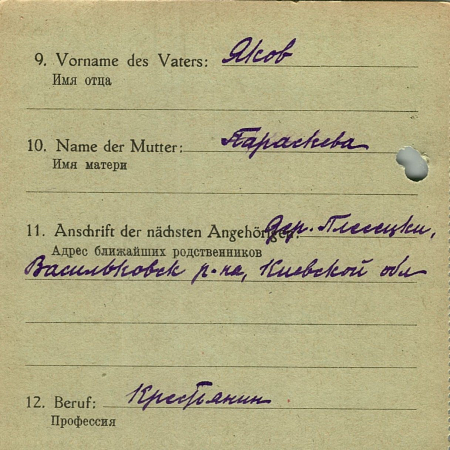 9. Vorname des Vaters: Яков
Имя отца
10. Name der Mutter: Параскева
Имя матери
11. Anschrift der nächsten Angehörigen: дер. Плесецки,
Адрес ближайших родственников
Васильковск р-на, Киевской обл
12. Beruf: Крестьянин
Профессия